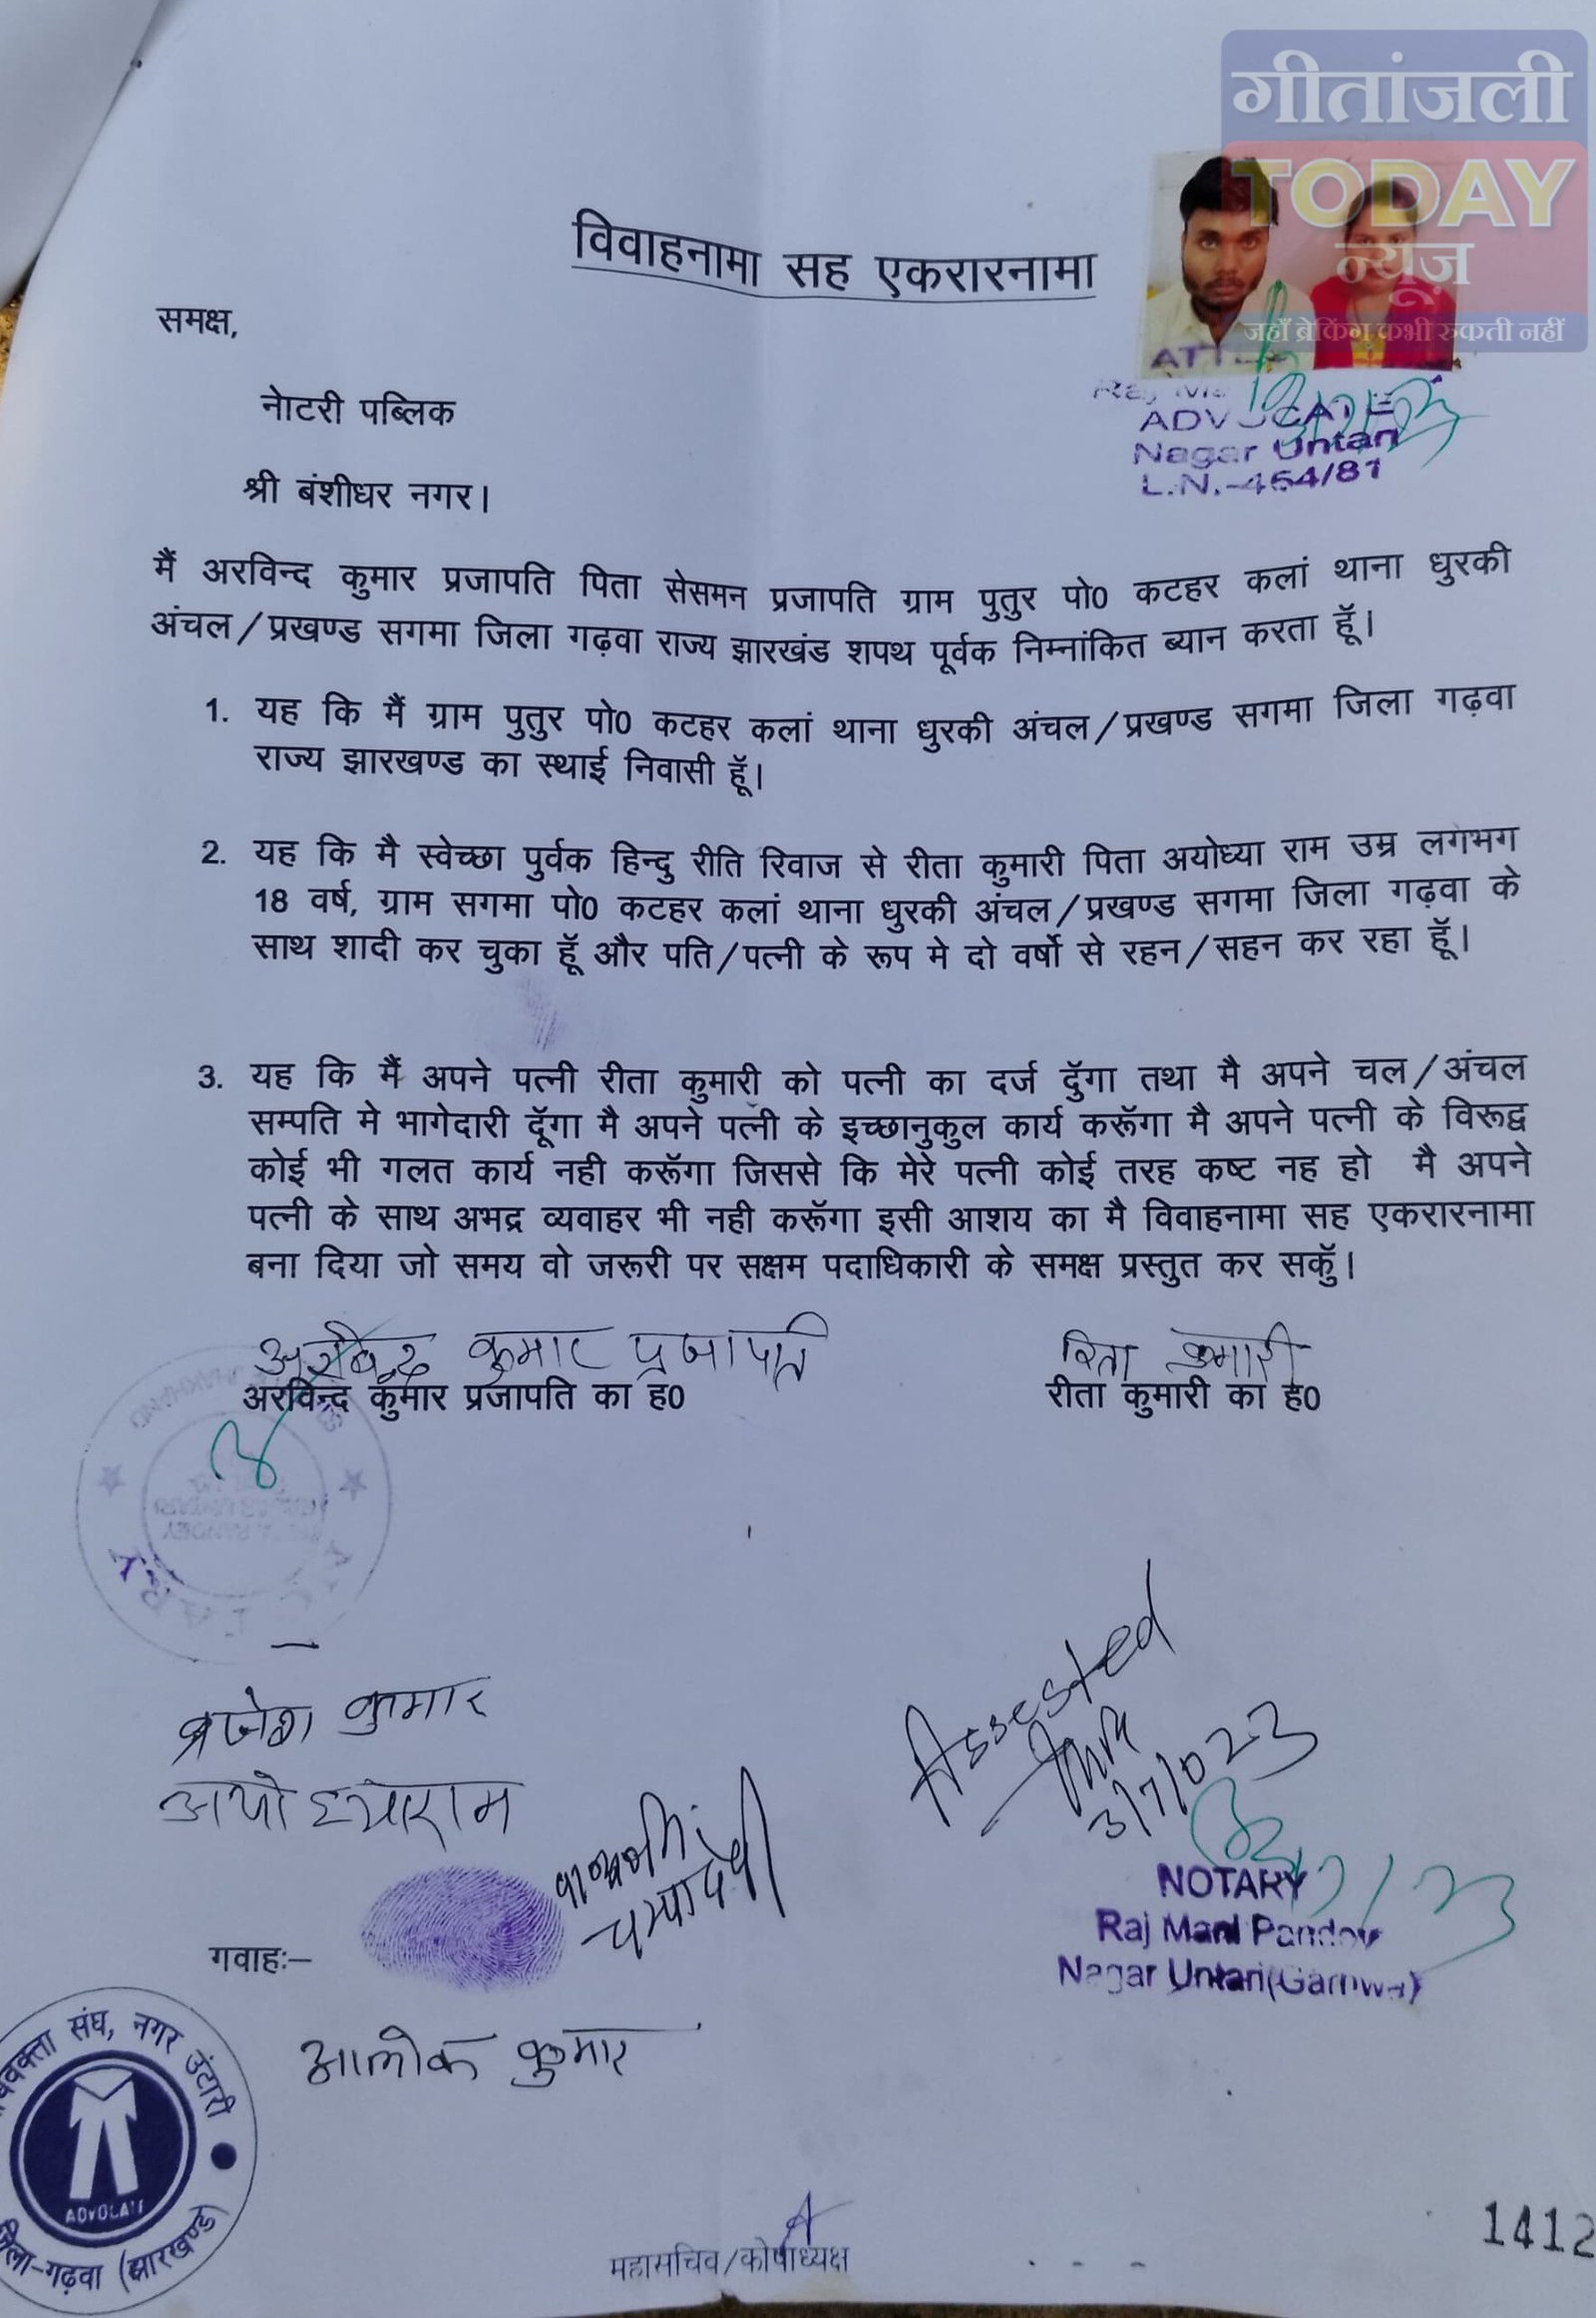 गीतांजली
TODAY
न्यूज़
जहाँ ब्रेकिंग कभी रुकती नहीं
विवाहनामा सह एकरारनामा
समक्ष,
नोटरी पब्लिक
श्री बंशीधर नगर।
ADVOCATE
Nagar Untari
L.N.-464/81
मैं अरविन्द कुमार प्रजापति पिता सेसमन प्रजापति ग्राम पुतुर पो0 कटहर कलां थाना धुरकी
अंचल/प्रखण्ड सगमा जिला गढ़वा राज्य झारखंड शपथ पूर्वक निम्नांकित ब्यान करता हूॅ।
1. यह कि मैं ग्राम पुतुर पो0 कटहर कलां थाना धुरकी अंचल/प्रखण्ड सगमा जिला गढ़वा
राज्य झारखण्ड का स्थाई निवासी हूॅ।
2. यह कि मै स्वेच्छा पुर्वक हिन्दु रीति रिवाज से रीता कुमारी पिता अयोध्या राम उम्र लगभग
18 वर्ष, ग्राम सगमा पो0 कटहर कलां थाना धुरकी अंचल/प्रखण्ड सगमा जिला गढ़वा के
साथ शादी कर चुका हूॅ और पति/पत्नी के रूप मे दो वर्षो से रहन/सहन कर रहा हूॅ।
3. यह कि मैं अपने पत्नी रीता कुमारी को पत्नी का दर्ज दुॅगा तथा मै अपने चल/अंचल
सम्पति मे भागेदारी दूॅगा मै अपने पत्नी के इच्छानुकुल कार्य करूॅगा मै अपने पत्नी के विरूद्व
कोई भी गलत कार्य नही करूॅगा जिससे कि मेरे पत्नी कोई तरह कष्ट नह हो मै अपने
पत्नी के साथ अभद्र व्यवाहर भी नही करूॅगा इसी आशय का मै विवाहनामा सह एकरारनामा
बना दिया जो समय वो जरूरी पर सक्षम पदाधिकारी के समक्ष प्रस्तुत कर सकुॅ।
अरविन्द कुमार प्रजापति
रिता कुमारी
अरविन्द कुमार प्रजापति का ह0
रीता कुमारी का ह0
ब्रजेश कुमार
अयोध्याराम
चम्पादेवी
Assested
3/7/023
NOTARY
Raj Mani Pandey
Nagar Untari(Garhwa)
गवाहः–
आलोक कुमार
संघ, नगर उंटारी
ADVOCATE
जिला-गढ़वा (झारखण्ड)
महासचिव/कोषाध्यक्ष
1412